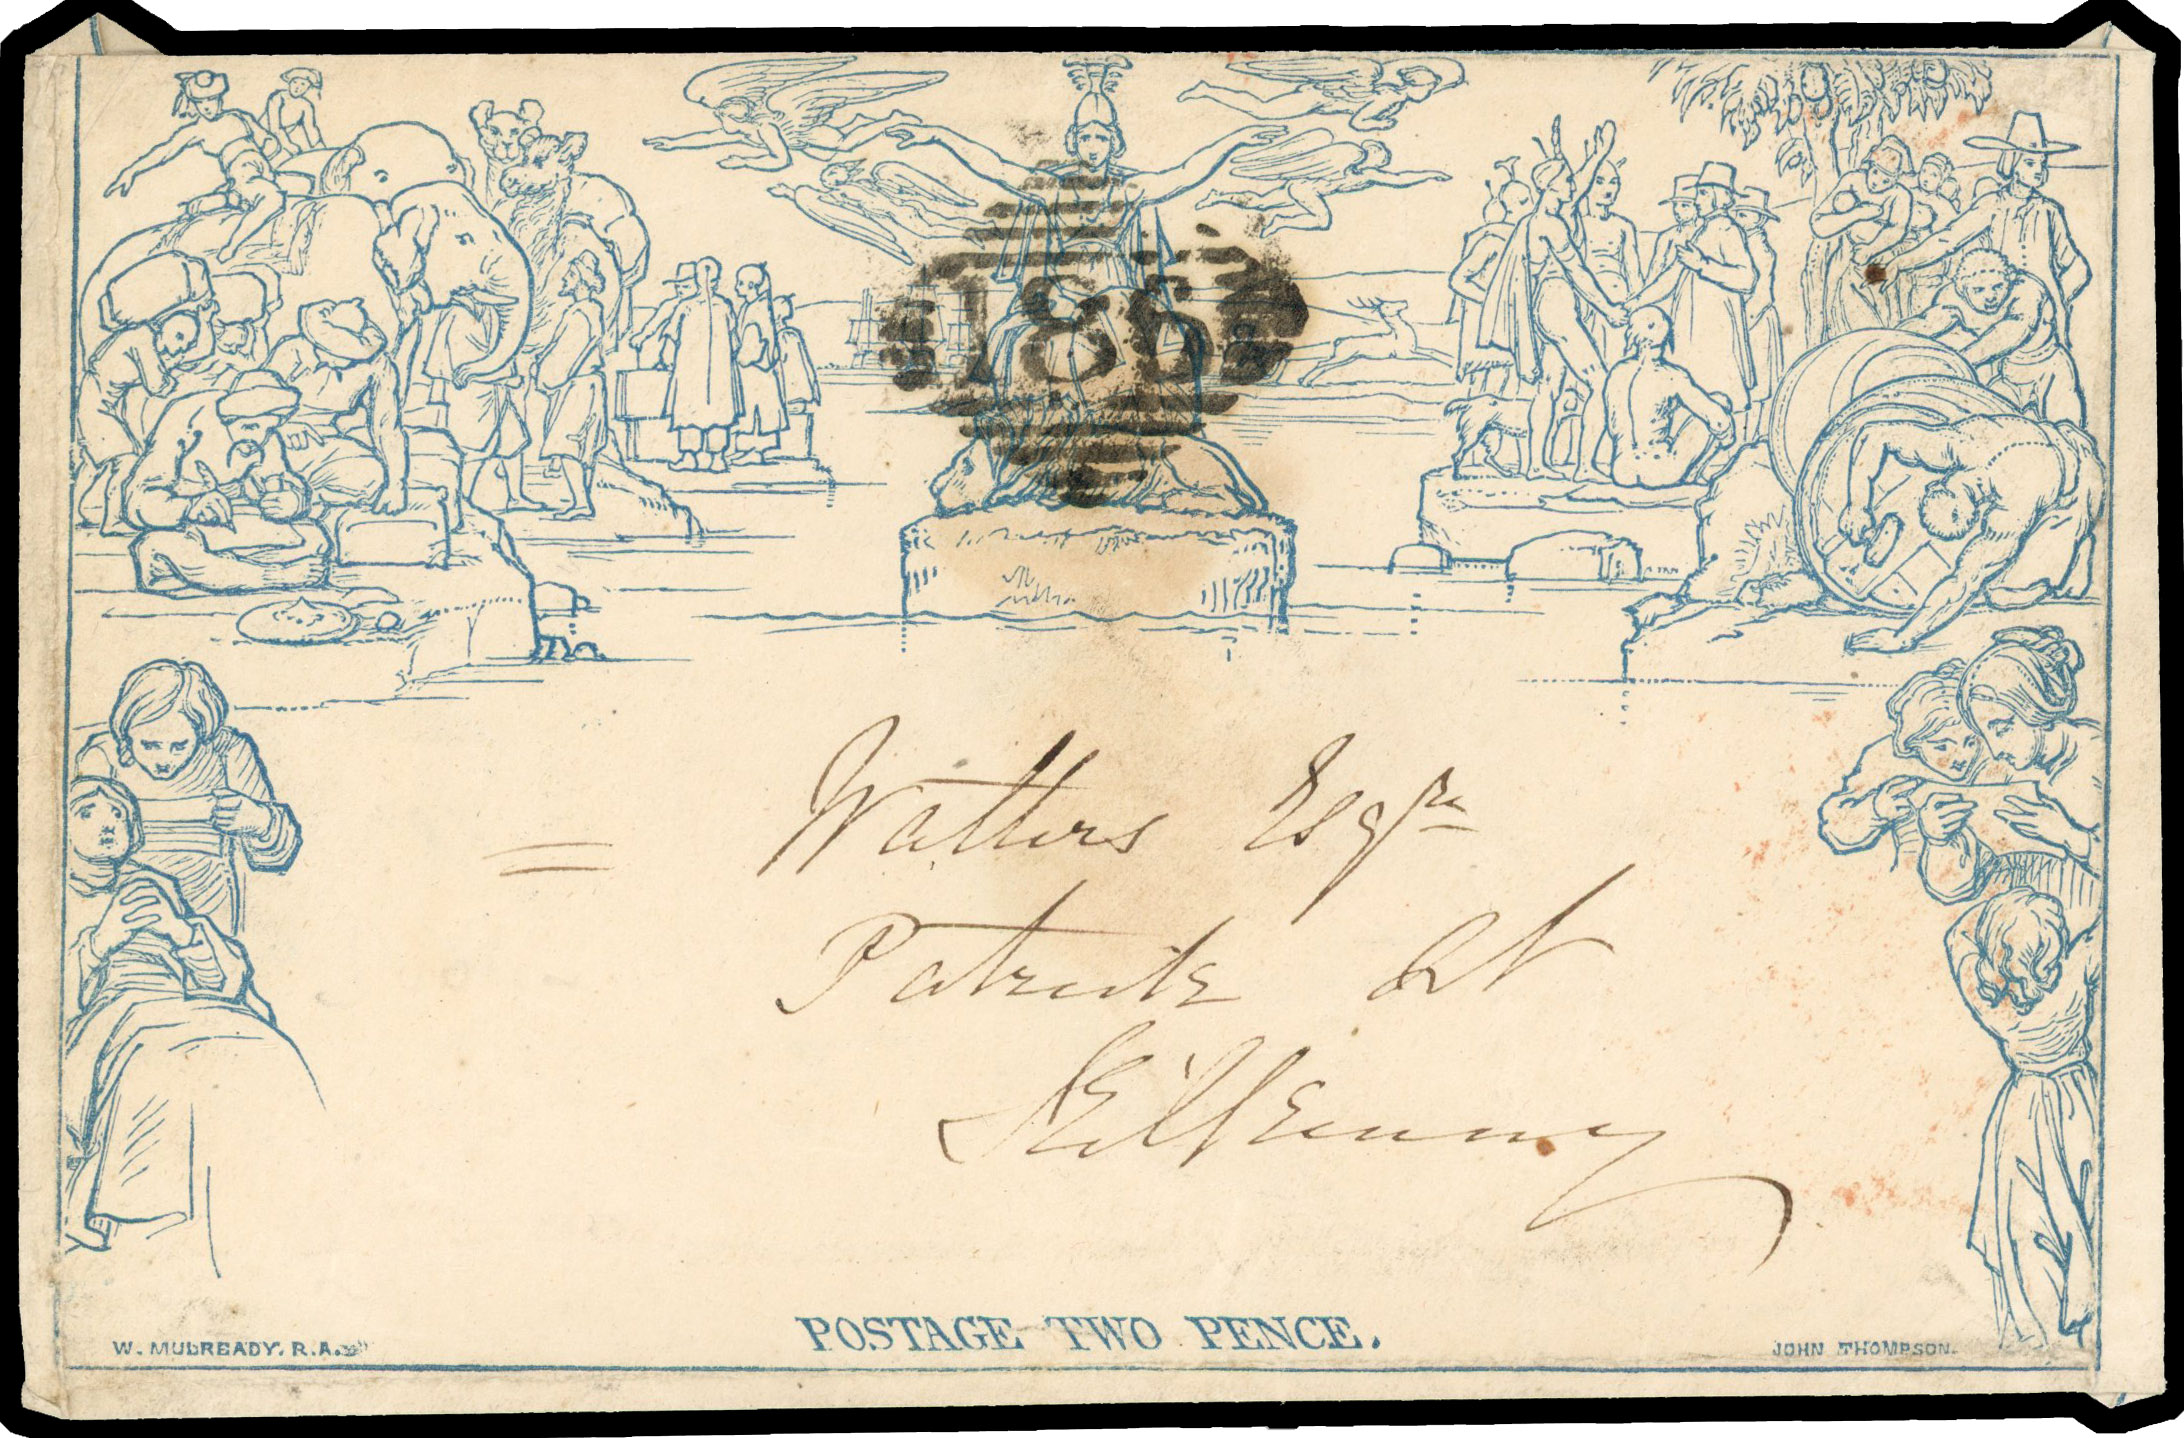 186
Watters Esqre
Patrick St
Kilkenny
POSTAGE TWO PENCE.
W. MULREADY. R.A.
JOHN THOMPSON.